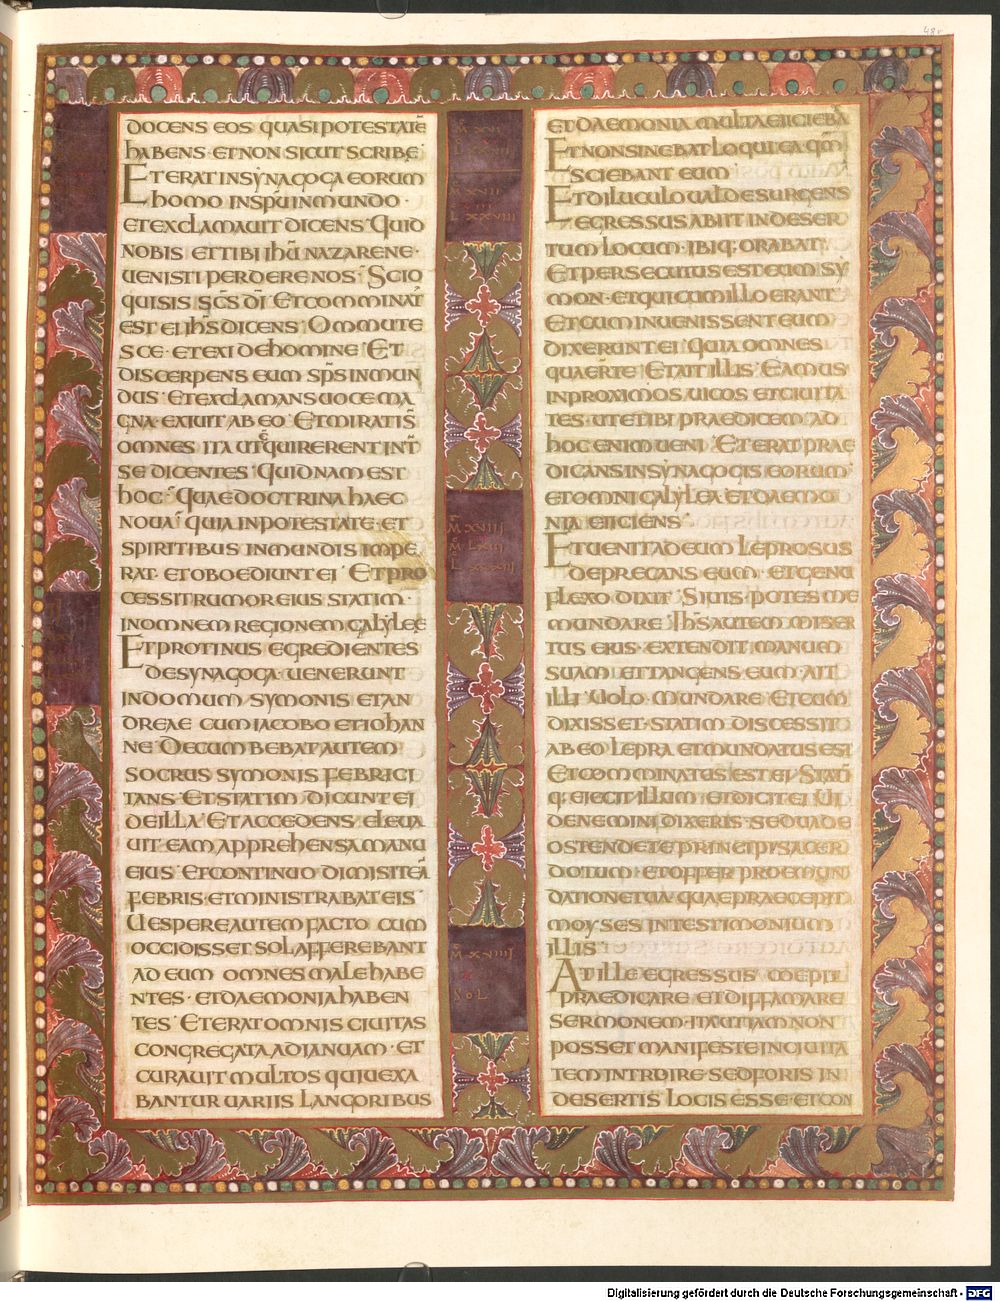 48r
DOCENS EOS QUASI POTESTATĒ
HABENS · ET NON SICUT SCRIBE ·
ET ERAT IN SYNAGOGA EORUM
HOMO IN SPŪ INMUNDO ·
ET EXCLAMAUIT DICENS · QUID
NOBIS ET TIBI IHŪ NAZARENE ·
UENISTI PERDERE NOS · SCIO
QUI SIS SC̄S DĪ · ET COMMINAT
EST EI IHS DICENS · OMMUTE
SCE · ET EXI DE HOMINE · ET
DISCERPENS EUM SPS INMUN
DUS · ET EXCLAMANS UOCE MA
GNA · EXIUIT AB EO · ET MIRATI S̄
OMNES ITA UT CQUIRERENT INT̄
SE DICENTES · QUIDNAM EST
HOC · QUAE DOCTRINA HAEC
NOUA · QUIA IN POTESTATE · ET
SPIRITIBUS INMUNDIS IMPE
RAT · ET OBOEDIUNT EI · ET PRO
CESSIT RUMOR EIUS STATIM ·
IN OMNEM REGIONEM GALYLEE
ET PROTINUS EGREDIENTES
DE SYNAGOGA · UENERUNT
IN DOMUM SYMONIS ET AN
DREAE CUM IACOBO ET IOHAN
NE · DECUMBEBAT AUTEM
SOCRUS SYMONIS FEBRICI
TANS · ET STATIM DICUNT EI
DE ILLA · ET ACCEDENS ELEUA
UIT EAM APPREHENSA MANU
EIUS · ET CONTINUO DIMISIT EĀ
FEBRIS · ET MINISTRABAT EIS ·
UESPERE AUTEM FACTO CUM
OCCIDISSET SOL AFFEREBANT
AD EUM OMNES MALE HABE
NTES · ET DAEMONIA HABEN
TES · ET ERAT OMNIS CIUITAS
CONGREGATA AD IANUAM · ET
CURAUIT MULTOS QUI UEXA
BANTUR UARIIS LANGORIBUS
M XVII
L XXVIII
M XVIII
M LXIII
L XXXIII
M XVIIII
SOL
ET DAEMONIA MULTA EICIEBĀ
ET NON SINEBAT LOQUI EA QM̄
SCIEBANT EUM
ET DILUCULO UALDE SURGENS
EGRESSUS ABIIT IN DESER
TUM LOCUM · IBIQ; ORABAT ·
ET PERSECUTUS EST EUM SY
MON · ET QUI CUM ILLO ERANT ·
ET CUM INUENISSENT EUM
DIXERUNT EI · QUIA OMNES
QUAERT̄ TE · ET AIT ILLIS · EAMUS
IN PROXIMOS UICOS ET CIUITA
TES · UT ET IBI PRAEDICEM · AD
HOC ENIM UENI · ET ERAT PRAE
DICANS IN SYNAGOGIS EORUM ·
ET OMNI GALYLEA · ET DAEMO
NIA EIICIENS ·
ET UENIT AD EUM LEPROSUS
DEPRECANS EUM · ET GENU
FLEXO DIXIT · SI UIS · POTES ME
MUNDARE · IHS AUTEM MISER
TUS EIUS · EXTENDIT MANUM
SUAM · ET TANGENS EUM · AIT
ILLI · UOLO · MUNDARE · ET CUM
DIXISSET · STATIM DISCESSIT
AB EO LEPRA · ET MUNDATUS EST
ET COMMINATUS EST EI · STATI
Q; EIECIT ILLUM · ET DICIT EI · UI
DE NEMINI DIXERIS · SED UADE
OSTENDE TE PRINCIPI SACER
DOTUM · ET OFFER PRO EMUN
DATIONE TUA · QUAE PRAECEPIT
MOYSES IN TESTIMONIUM
ILLIS
AT ILLE EGRESSUS COEPIT
PRAEDICARE · ET DIFFAMARE
SERMONEM · ITA UT IAM NON
POSSET MANIFESTE IN CIUITA
TEM INTROIRE · SED FORIS IN
DESERTIS LOCIS ESSE · ET CON
Digitalisierung gefördert durch die Deutsche Forschungsgemeinschaft - DFG